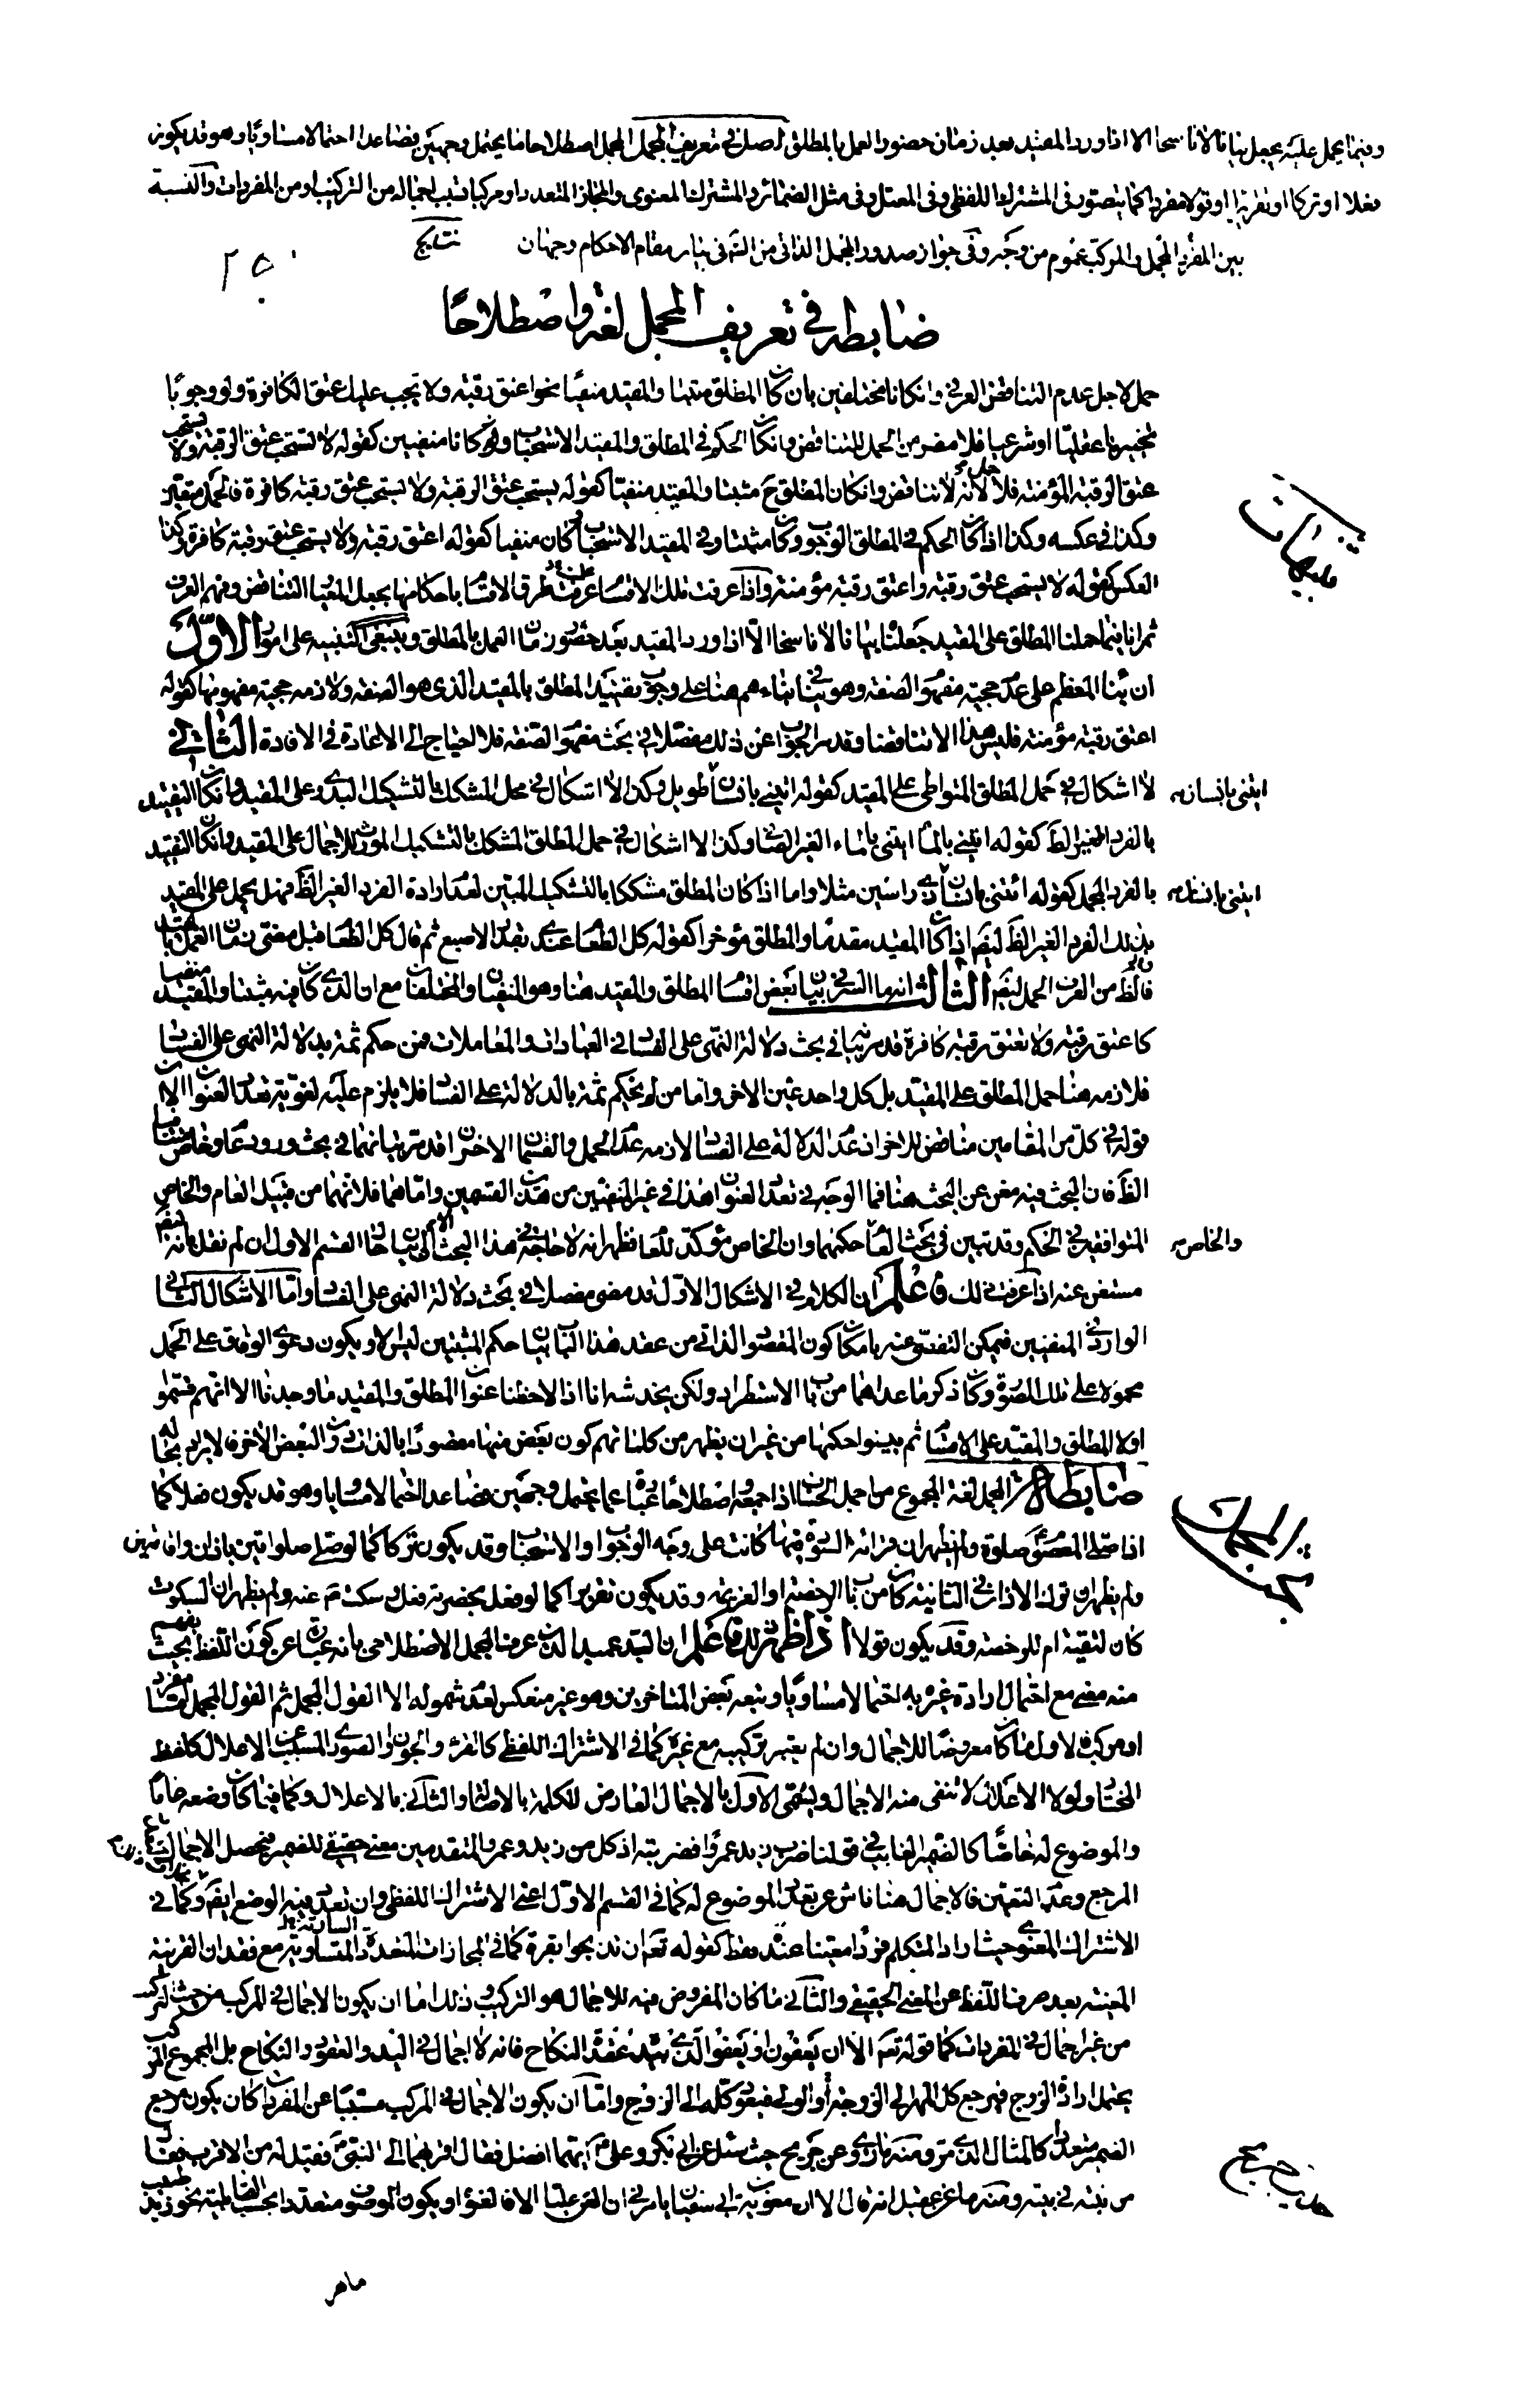 وفيما يحمل عليه يجعل بيانا لا ناسخا الا اذا ورد المقيد بعد زمان حضور العمل بالمطلق اصل في تعريف المجمل المجمل اصطلاحا ما يحتمل وجهين فصاعدا احتمالا مساويا وهو قد يكون
فعلا او تركا او تقريرا او قولا مفردا كما يتصور في المشترك اللفظي وفي المعتل وفي مثل الضمائر والمشترك المعنوي والمجاز المتعدد او مركبا من التركيب او من المفردات والنسبة
بين المفرد المجمل والمركب عموم من وجه وفي جواز صدور المجمل الذاتي من الشه في بيان مقام الاحكام وجهان
نتايج
٢٥٠
ضابطه في تعريف المجمل لغة واصطلاحا
حمل لاجل عدم التناقض العرفي وانكانا مختلفين بان كان المطلق مثبتا والمقيد منفيا نحو اعتق رقبة ولا تجب عليك عتق الكافرة ولو وجوبا
تخييريا عقليا او شرعيا فلا مفر من الحمل للتناقض وانكان الحكم في المطلق والمقيد الاستحباب ولو كانا منفيين كقوله لا تستحب عتق الرقبة ولا يستحب
عتق الرقبة المؤمنة فلا حمل لانه لا تناقض وانكان المطلق ح مثبتا والمقيد منفيا كقوله يستحب عتق الرقبة ولا يستحب عتق رقبة كافرة فالحمل متعين
وكذا في عكسه وكذا اذا كان الحكم في المطلق الوجوب وكان مثبتا وفي المقيد الاستحباب وكان منفيا كقوله اعتق رقبة ولا يستحب عتق رقبة كافرة وكذا
العكس كقوله لا يستحب عتق رقبة واعتق رقبة مؤمنة واذا عرفت تلك الاقسام عرفت طرق الاقسام باحكامها بجعل المعيار التناقض وفهم العرف
ثم انا فيما حملنا المطلق على المقيد جعلنا بيانا لا ناسخا الا اذا ورد المقيد بعد حضور زمان العمل بالمطلق وينبغي التنبيه على امور الاول
ان بناء المعظم على عدم حجية مفهوم الصفة وهو ينافي بناءهم هنا على وجوب تقييد المطلق بالمقيد الذي هو الصفة ولازمه حجية مفهومها كقوله
اعتق رقبة مؤمنة فليس هذا الا تناقضا وقد مر الجواب عن ذلك مفصلا في بحث مفهوم الصفة فلا احتياج الى الاعادة في الافادة الثاني
لا اشكال في حمل المطلق المتواطي على المقيد كقوله ايتني بانسان طويل وكذا لا اشكال في محل المشكك بالتشكيك البدوي على المقيد وانكان التقييد
ايتني بانسان
بالفرد الغير الظ كقوله ايتني بالماء ايتني بالماء الغير الصافي وكذا لا اشكال في حمل المطلق المشكك بالتشكيك المورث للاجمال على المقيد وانكان التقييد
بالفرد المجمل كقوله ائتني بانسان ذي راسين مثلا واما اذا كان المطلق مشككا بالتشكيك المبين لعدم ارادة الفرد الغير الظ فهل يحمل على المقيد
ايتني بانسان
بذلك الفرد الغير الظ ايضا اذا كان المقيد مقدما والمطلق مؤخرا كقوله كل الطعام عندي بقدر الاصبع ثم قال كل الطعام قبل مضي زمان العمل بالمقيد
فالظ من العرف الحمل ايضا الثالث انهما السر في بيان بعض اقسام المطلق والمقيد هنا وهو المنفيان والمختلفان مع ان الذي كان منه مثبتا والمقيد منفيا
كاعتق رقبة ولا تعتق رقبة كافرة قد مر بيانه في بحث دلالة النهي على الفساد في العبادات والمعاملات فمن حكم ثمة بدلالة النهي على الفساد
فلازمه هنا حمل المطلق على المقيد بل كل واحد عين الاخر واما من لم يحكم ثمة بالدلالة على الفساد فلا يلزم عليه لغوية تعدد العنوان الا ان
قوله في كل من المقامين مناقض للاخر اذ عدم الدلالة على الفساد لازمه عدم الحمل والقسمان الاخران قد مر بيانهما في بحث ورود عام وخاص متنافيا
الظ فان البحث فيه مغن عن البحث هنا فما الوجه في تعدد العنوان هذا في غير المنفيين من هذين القسمين واما هما فلانهما من قبيل العام والخاص
المتوافقين في الحكم وقد تبين في بحث العام حكمهما وان الخاص مؤكد للعام فظهر انه لا حاجة في هذا البحث الا الى بيان حال القسم الاول ان لم نقل بانه ايضا
والخاص
مستغن عنه اذا عرفت ذلك فاعلم ان الكلام في الاشكال الاول قد مضى مفصلا في بحث دلالة النهي على الفساد واما الاشكال الثاني
الوارد في المنفيين فيمكن التفصي عنه بامكان كون المقصود الذاتي من عقد هذا الباب بيان حكم المثبتين ليس الا ويكون دعوى الوفاق على الحمل
محمولة على تلك الصورة وكان ذكر ما عداهما من باب الاستطراد ولكن يخدشه انا اذا لاحظنا عنوان المطلق والمقيد ما وجدنا الا انهم قسموا
اولا المطلق والمقيد على الاقسام ثم بينوا حكمها من غير ان يظهر من كلماتهم كون بعض منها مقصودا بالذات والبعض الاخر
ضابطة المجمل لغة المجموع من اجمل الحساب اذا جمعه واصطلاحا عبارة عما يحتمل وجهين فصاعدا احتمالا مساويا وهو قد يكون فعلا كما
اذا صلى المعصوم صلوة ولم يظهر ان قرائة السورة فيها كانت على وجه الوجوب او الاستحباب وقد يكون تركا كما لو صلى صلواتين باذان واقامتين
ولم يظهر ان ترك الاذان في الثانية كان من باب الرخصة او العزيمة وقد يكون تقريرا كما لو فعل بحضرته فعل وسكت عنه ولم يظهر ان السكوت
كان لتقية ام للرخصة وقد يكون قولا اذا ظهر لك فاعلم ان السيد عميد الدين عرف المجمل الاصطلاحي بانه عبارة عن كون اللفظ بحيث يفهم
منه معنى مع احتمال ارادة غيره به احتمالا مساويا وتبعه بعض المتاخرين وهو غير منعكس لعدم شموله الا القول المجمل ثم القول المجمل اما مفرد
او مركب فالاول ما كان معروضا للاجمال وان لم يعتبر تركيبه مع غيره كما في الاشتراك اللفظي كالقرء والجون والصوري المسبب عن الاعلال كلفظ
المختار ولولا الاعلال لانتفى منه الاجمال ويسمى الاول بالاجمال العارض للكلمة بالاصالة والثاني بالاعلال وكما فيما كان وضعه عاما
والموضوع له خاصا كالضمير الغايب في قولنا ضرب زيد عمروا فضربته اذ كل من زيد وعمرو المتقدمين معنى حقيقي للضمير فيحصل الاجمال
المرجع وعدم التعيين فالاجمال هنا ناش عن تعدد الموضوع له كما في القسم الاول اعني الاشتراك اللفظي وان تعدد فيه الوضع ايضا وكما في
الاشتراك المعنوي حيث اراد المتكلم فردا معينا عنده فقط كقوله تعم ان تذبحوا بقرة كما في المجازات المتعددة المتساوية مع فقدان القرينة
المعينة بعد صرف اللفظ عن المعنى الحقيقي والثاني ما كان المعروض فيه للاجمال هو التركيب وذلك اما ان يكون الاجمال في المركب من حيث التركيب
من غير اجمال في المفردات كما قوله تعم الا ان يعفون او يعفو الذي بيده عقدة النكاح فانه لا اجمال في اليد والعقدة والنكاح بل المجموع المركب
يحتمل ارادة الزوج فيرجع كل المهر الى الزوجة او الولي فيعود كله الى الزوج واما ان يكون الاجمال في المركب مسببا عن المفرد كان يكون مرجع
الضمير متعددا كالمثال الذي مر ومنه ما روي عن جريح حيث سئل عن ابي بكر وعلي ايهما افضل فقال اقربهما الى النبي فقيل له من الاقرب فقال
من بنته في بيته ومنه ما عن عقيل انه قال الا ان معوية بن ابي سفيان يامرني ان العن عليا الا فالعنوه او يكون الموصوف متعددا بحسب القابلية نحو زيد
تنبيهات
بحث المجملات
ماهر